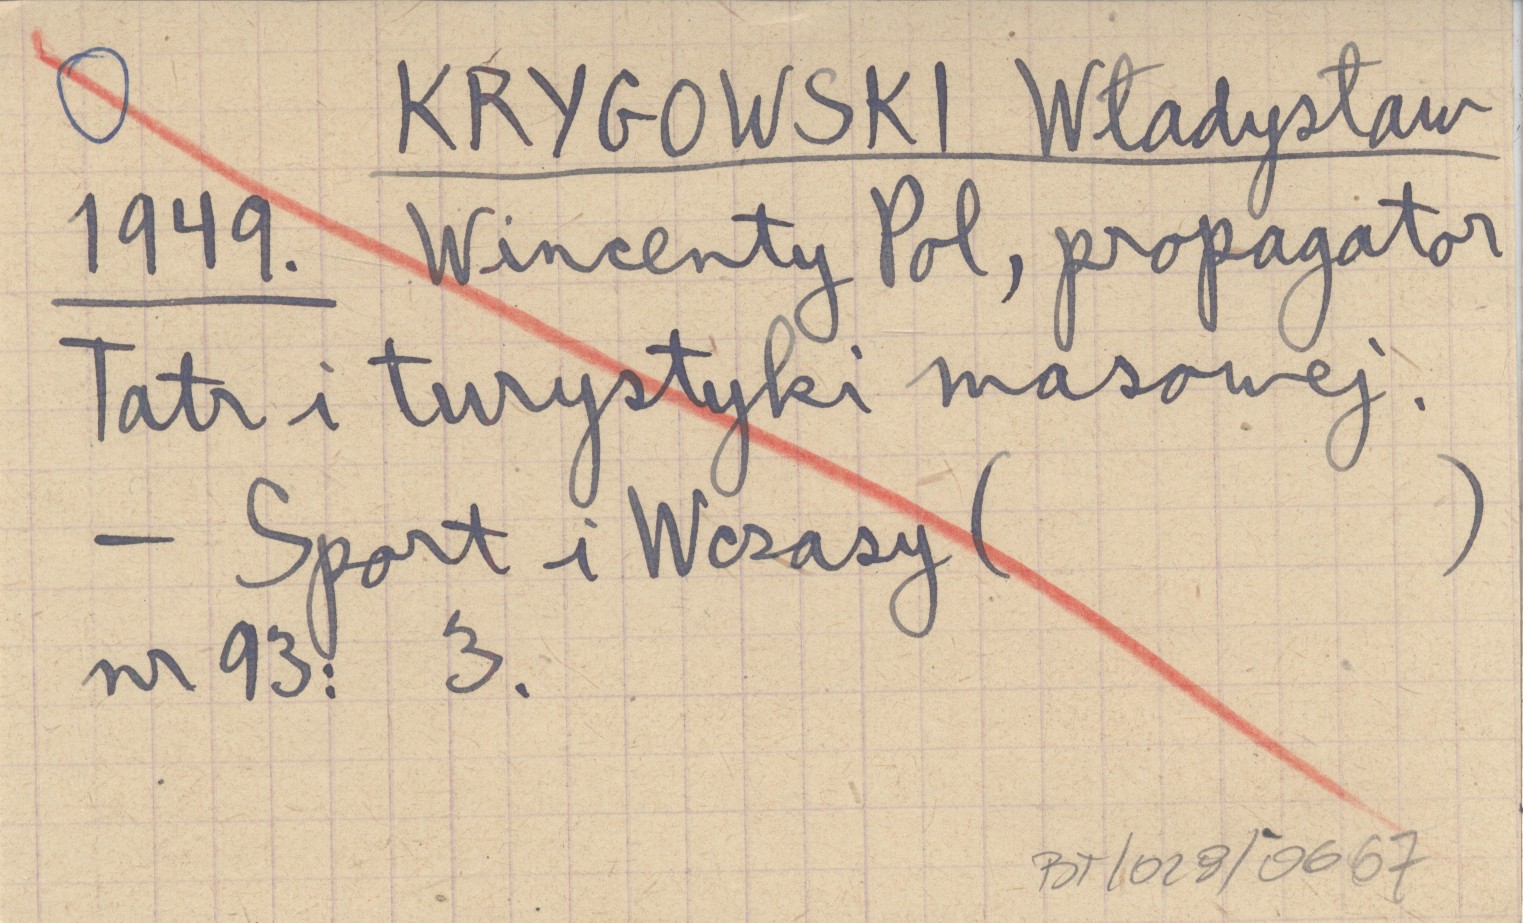 KRYGOWSKI Władysław
1949. Wincenty Pol, propagator
Tatr i turystyki masowej.
— Sport i Wczasy ( )
nr 93: 3.
BT/028/0667